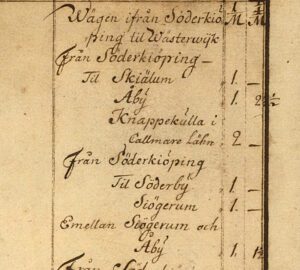 Wägen ifrån Söderkiö M M
ping til Wästerwijk
från Söderkiöping –
Til Skiälum 1. –
Åby 1. 2½
Knappekulla i
Callmare Lähn 2 –
Från Söderkiöping
Til Söderby 1. –
Siögerum 1. –
Emellan Siögerum och
Åby 1. 1½